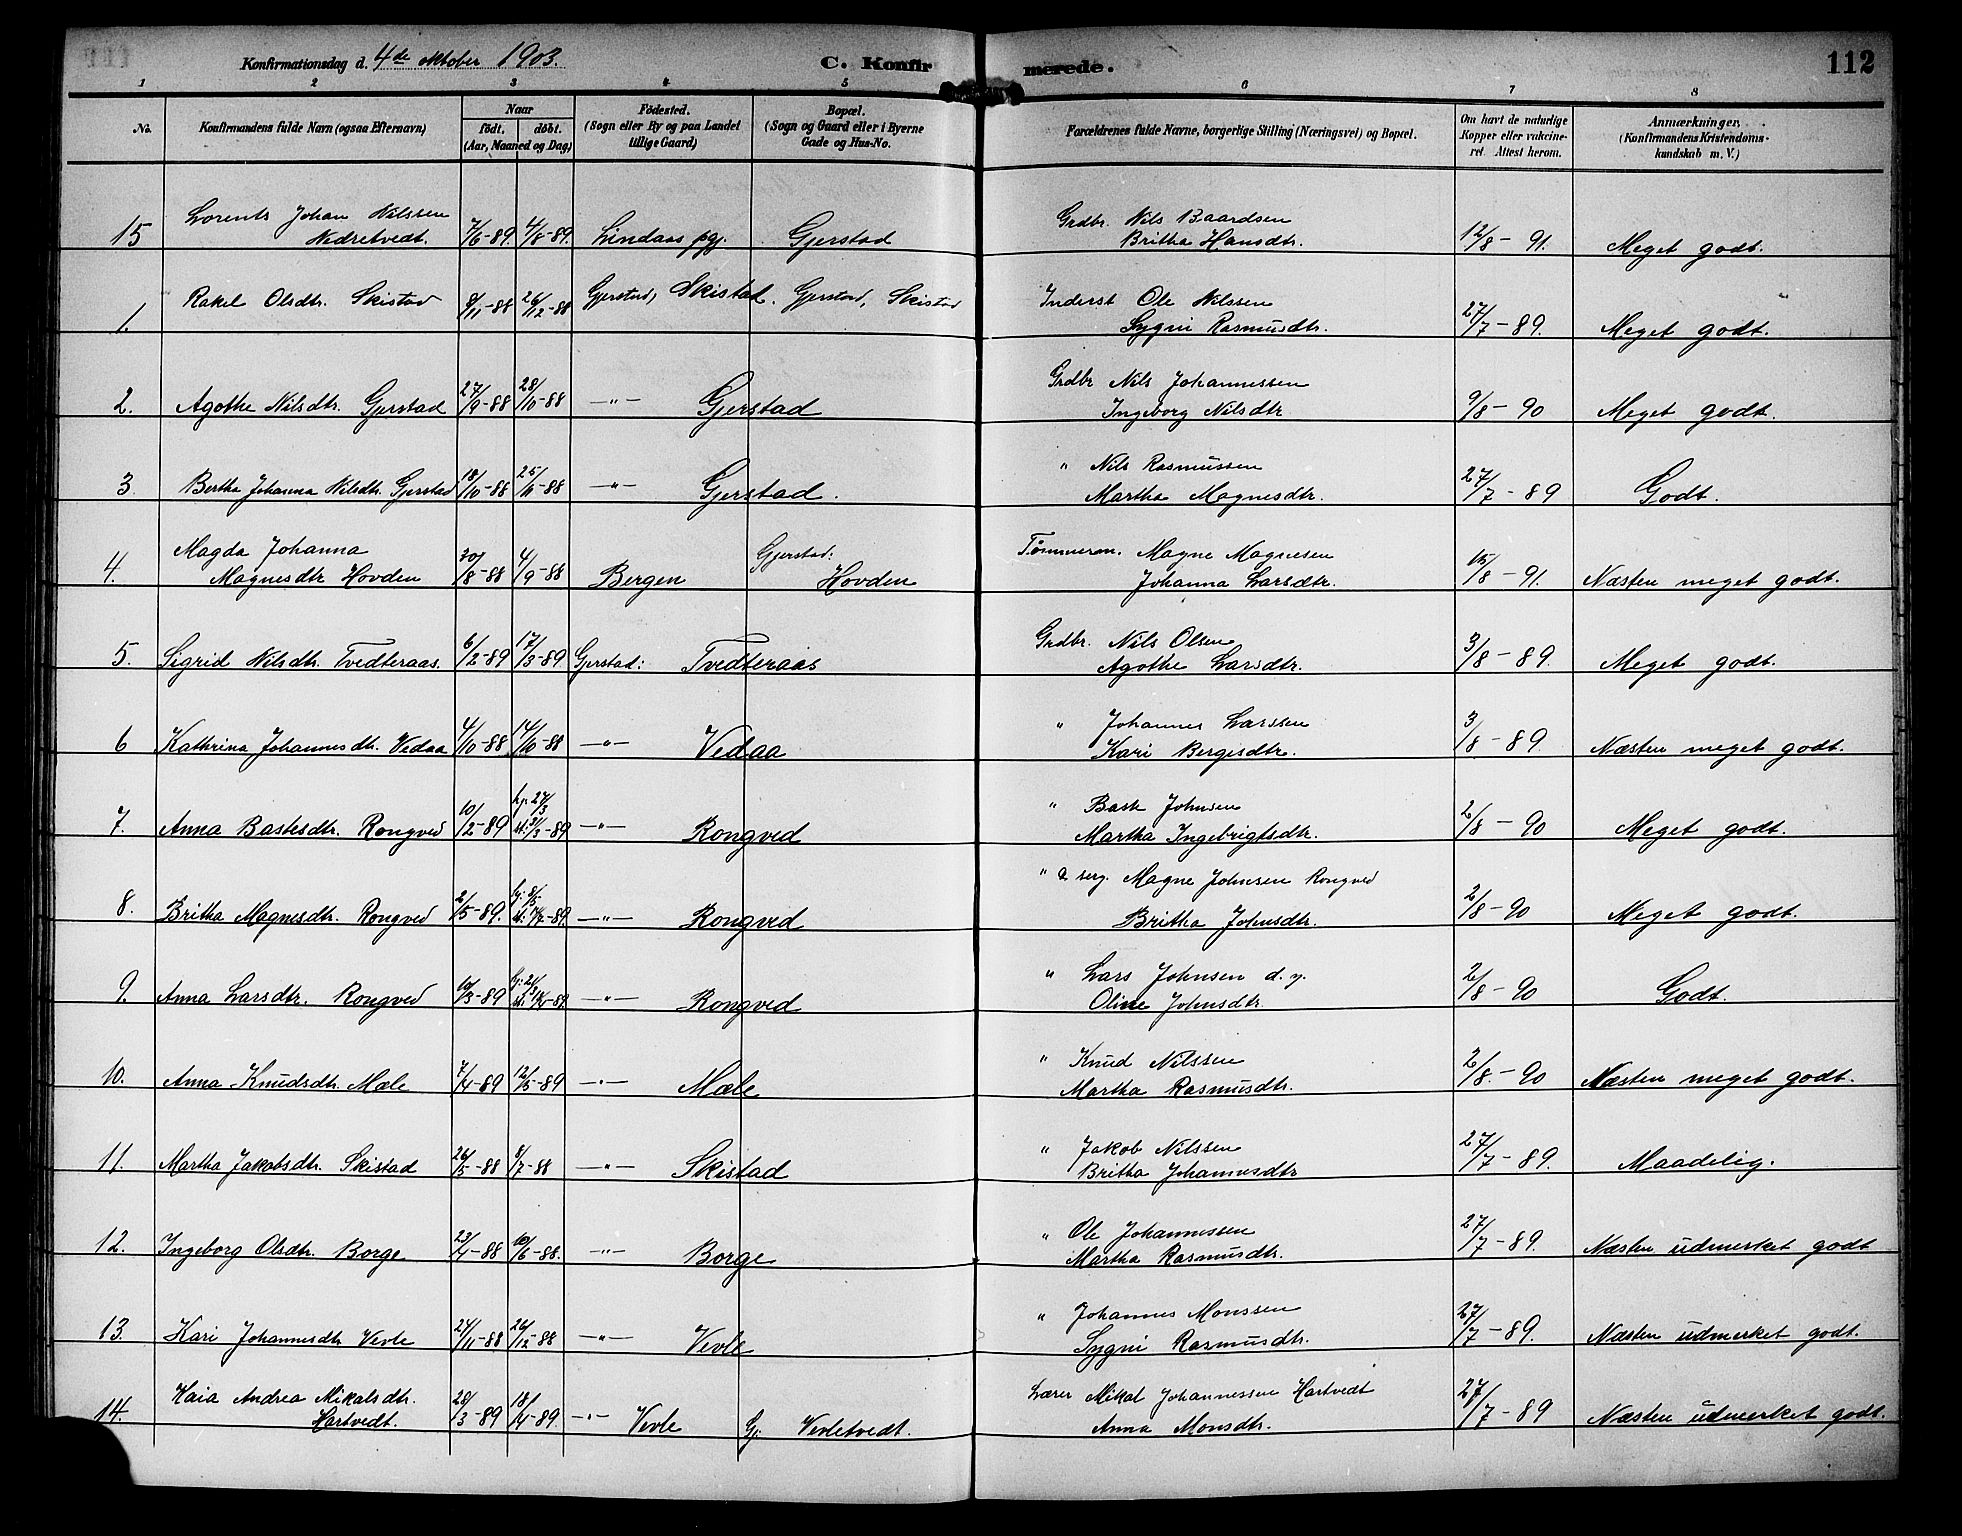 Konfirmationsdag d. 4de oktober 1903.
C. Konfir merede.
112
1 2 3 4 5 6 7 8
No.
Konfirmandens fulde Navn (ogsaa Efternavn)
Naar
født. døbt.
(Aar, Maaned og Dag)
Fødested.
(Sogn eller By og paa Landet
tillige Gaard)
Bopæl.
(Sogn og Gaard eller i Byerne
Gade og Hus-No.
Forældrenes fulde Navne, borgerlige Stilling (Næringsvei) og Bopæl.
Om havt de naturlige
Kopper eller vakcine-
ret. Attest herom.
Anmærkninger.
(Konfirmandens Kristendoms-
kundskab m. V.)
Lorents Johan Nilssen Grdbr. Nils Baardsen
15 Nedretvedt. 7/6-89. 4/8-89. Lindaas pgj. Gjerstad Britha Hansdtr. 12/8-91. Meget godt.
Rakel Olsdtr. Skistad 8/11-88 26/12-88 Gjerstad, Skistad. Gjerstad, Skistad Inderst Ole Nilssen
1. Sygni Rasmusdtr. 27/7-89. Meget godt.
Grdbr Nils Johannessen
2. Agothe Nilsdtr. Gjerstad 27/9-88 28/10-88 —"— Gjerstad Ingeborg Nilsdtr 9/8-90 Meget godt.
" Nils Rasmussen
3. Bertha Johanna Nilsdtr. Gjerstad 18/10-88 25/11-88 —"— Gjerstad. Martha Magnesdtr. 27/7-89 Godt.
Magda Johanna Gjerstad: Tømmerm. Magne Magnesen
4. Magnesdtr Hovden 30/8-88 4/9-88 Bergen Hovden Johanna Larsdtr. 15/8-91. Næsten meget godt.
Grdbr. Nils Olsen
5. Sigrid Nilsdtr. Tvedteraas. 6/2-89 17/3-89. Gjerstad: Tvedteraas Agothe Larsdtr. 3/8-89. Meget godt.
" Johannes Larssen
6 Kathrina Johannesdtr. Vedaa 4/10-88 14/10-88 —"— Vedaa Kari Bergesdtr. 3/8-89. Næsten meget godt.
" Baste Johnsen
7. Anna Bastesdtr. Rongved 10/2-89 27/3 3/3-89 —"— Rongved Martha Ingebrigtsdtr. 2/8-90 Meget godt.
" & serg. Magne Johnsen Rongved
8. Britha Magnesdtr. Rongved 2/5-89. 8/5 -89. —"— Rongved Britha Johnsdtr. 2/8-90 Meget godt.
" Lars Johnsen d. y.
9. Anna Larsdtr. Rongved 10/3-89 21/3 -89. —"— Rongved Oline Johnsdtr. 2/8-90 Godt.
" Knud Nilssen
10. Anna Knudsdtr. Mæle 7/4-89 12/5-89 —"— Mæle Martha Rasmusdtr. 2/8-90 Næsten meget godt.
" Jakob Nilssen
11. Martha Jakobsdtr. Skistad 26/5-88 8/7-88 —"— Skistad Britha Johannesdtr 27/7-89. Maadelig.
" Ole Johannessen
12. Ingeborg Olsdtr. Borge 23/4-88 10/6-88. —"— Borge Martha Rasmusdtr. 27/7-89. Næsten udmerket godt
" Johannes Monssen
13. Kari Johannesdtr Vevle 24/11-88 26/12-88 —"— Vevle Sygni Rasmusdtr. 27/7-89. Næsten udmerket godt.
Kaia Andrea Mikalsdtr. Lærer Mikal Johannessen Hartvedt
14. Hartvedt. 28/3-89 18/4-89. —"— Vevle Gj. Vevletvedt. Anna Monsdtr. 27/7-89 Næsten udmerket godt.